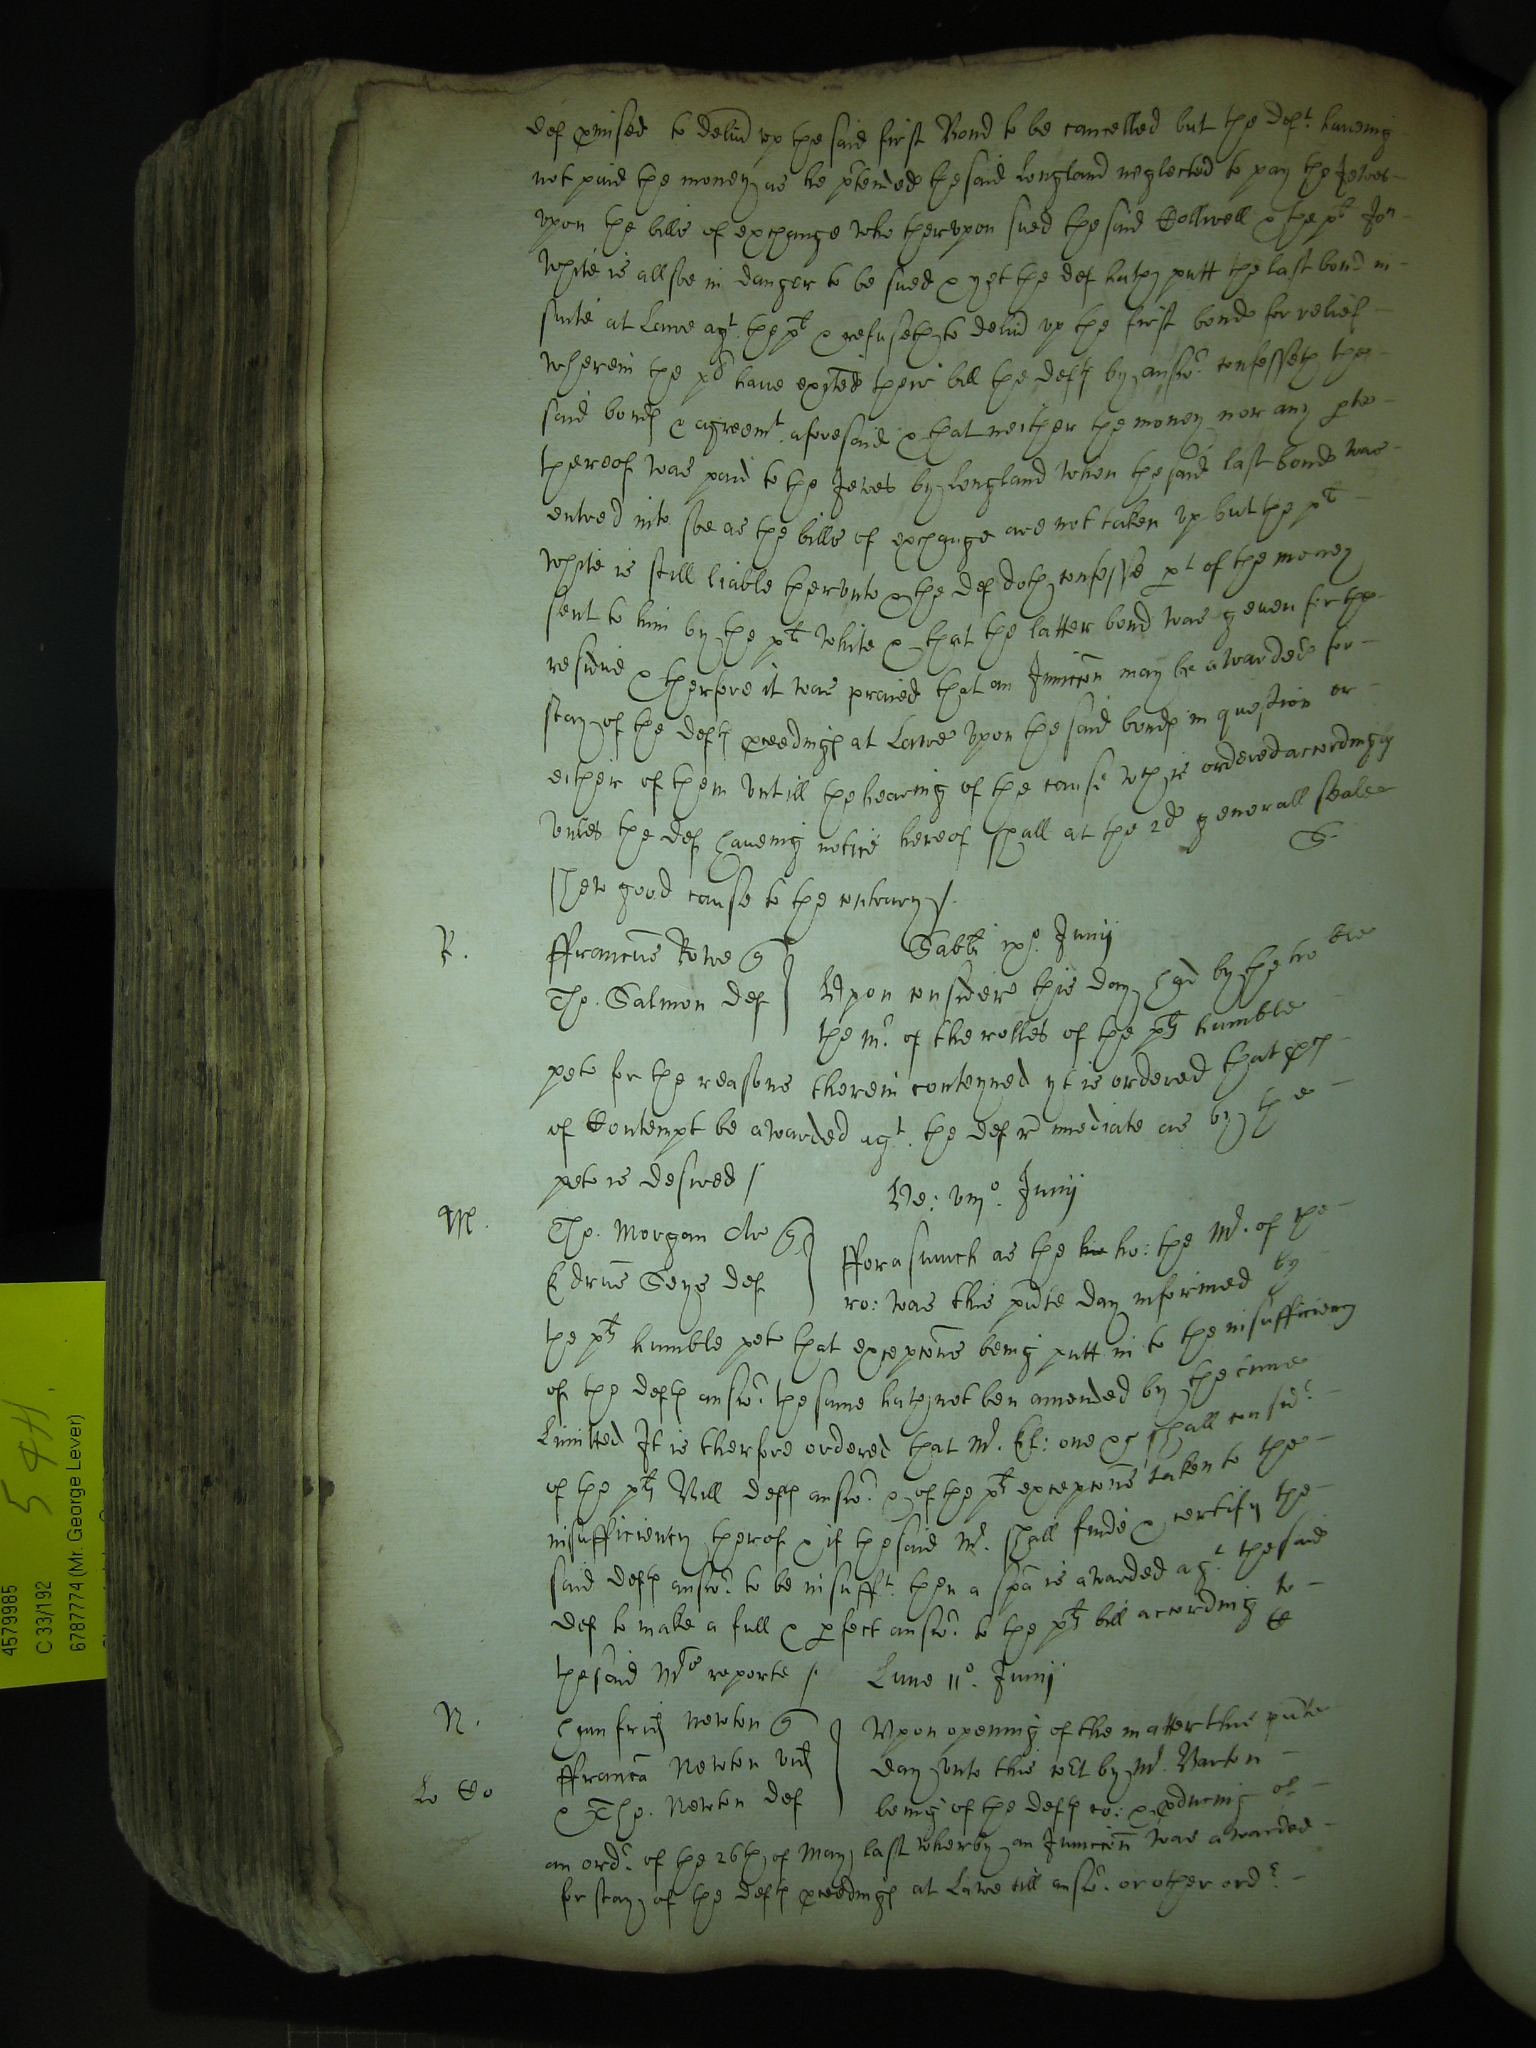 def p̱mised to deliũ vp the said first Bond to be cancelled but the deft. haveing
not paid the money as he p̃tended the said Longland neglected to pay the Jewes
vpon the bills of exchange who thervpon sued the said Collwell & the plt Jon
White is allsoe in danger to be sued & yet the def hath putt the last bond in
suite at Lawe agt. the plt & refuseth to deliũ vp the first bond for relief
wherein the plts have exĩted their bill the deft by answ: confesseth the
said bonds & agreemt. aforesaid & that neither the money nor any p̱te
thereof was paid to the Jewes by Longland when the said last bond was
entred into soe as the bills of exchange are not taken vp but the plt
White is still liable thervnto & the def doth confesse pt of the money
sent to him by the plt White & that the latter bond was geven for the
residue & therfore it was praied that an Iniunccõn may be awarded for
stay of the defts p̱ceedings at Lawe vpon the said bonds in question or
either of them vntill the hearing of the cause wch is ordered accordingly
vnles the def haveing notice hereof shall at the 2d generall seale
shew good cause to the contrary /.
S
R.
ffranciscus Rowe q
Tho. Salmon def
Sabti ixo. Junij
Vpon consideracõn this day had by the ho ble
the Mr. of the rolles of the plts humble
peticõn for the reasons therein conteyned yt is ordered that p̱cs
of Contempt be awarded agt. the def r̃ imediate as by the
petic̃ is desired /
M.
Ve: viijo. Junij
Tho. Morgan Ar q
Edrus Seys def
fforasmuch as the ho: the Mr. of the
ro: was this p̃nte day informed by
the plts humble petic̃ that excepcõns being putt in to the insufficiency
of the defts answ: the same hath not ben amended by the time
Limitted It is therfore ordered that Mr. one &c shall consid:
of the plts Bill defts answ: & of the plts excepcõns taken to the
insufficiency therof & if the said Mr. shall finde & certify the
said defts answ: to be insufft. then a sp̃a is awarded agt. the said
def to make a full & p̱fect answ: to the plts bill according to
the said Mrs reporte /.
Lune 11o. Junij
N.
Humfrid Newton q
ffranca Newton vid
& Tho. Newton def
Vpon opening of the matter this p̃nte
day vnto this coĩt by Mr. Barton
being of the defts co: & p̱ducing of
an ord: of the 26th of May last wherby an Iniunccõn was awarded
for stay of the defts p̱ceedings at Lawe till answ: or other ord:
54H
4579985
C 33/192
6787774 (Mr. George Lever)